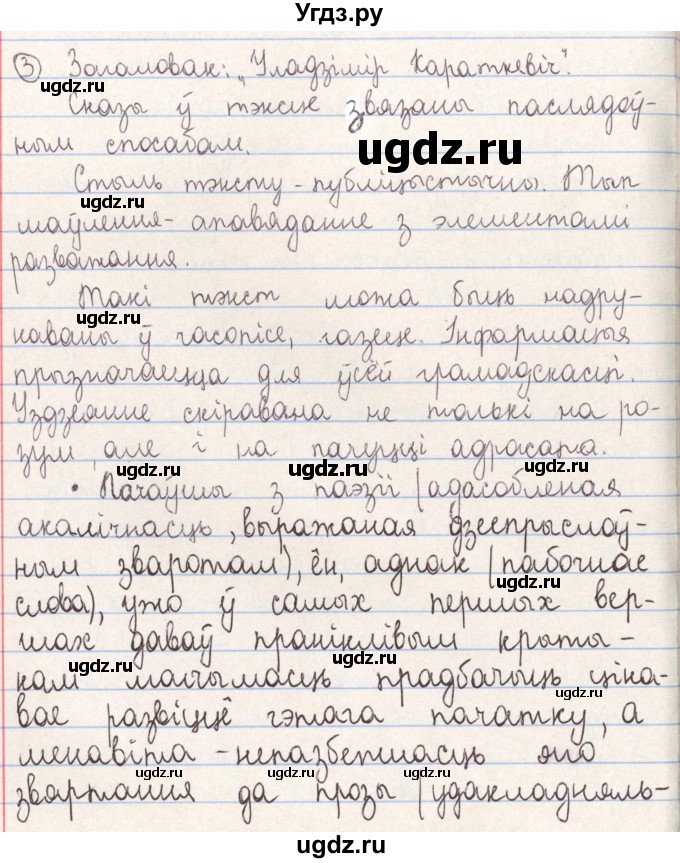 Угдз.ру
③ Загаловак: „Уладзімір Караткевіч".
ugdz.ru
Сказы ў тэксце звязаны паслядоў-
ным спосабам.
ugdz.ru
Стыль тэксту - публіцыстычны. Тып
ugdz.ru
маўлення - апавяданне з элементамі
разважання.
Такі тэкст можа быць надру-
ugdz.ru
каваны ў часопісе, газеце. Інфармацыя
прызначаецца для ўсёй грамадскасці.
Уздзеянне скіравана не толькі на ро-
зум, але і на пачуцці адрасата.
ugdz.ru ugdz.ru
• Пачаўшы з паэзіі (адасобленая
акалічнасць, выражаная дзеепрыслоў-
ным зваротам), ён, аднак (пабочнае
ugdz.ru
слова), ужо ў самых першых вер-
шах даваў пранiклiвым крыты-
ugdz.ru
кам магчымасць прадбачыць ціка-
ugdz.ru
вае развіццё гэтага пачатку, а
менавіта - непазбежнасць яго
ugdz.ru ugdz.ru ugdz.ru
звартання да прозы (удакладняль-
ugdz.ru